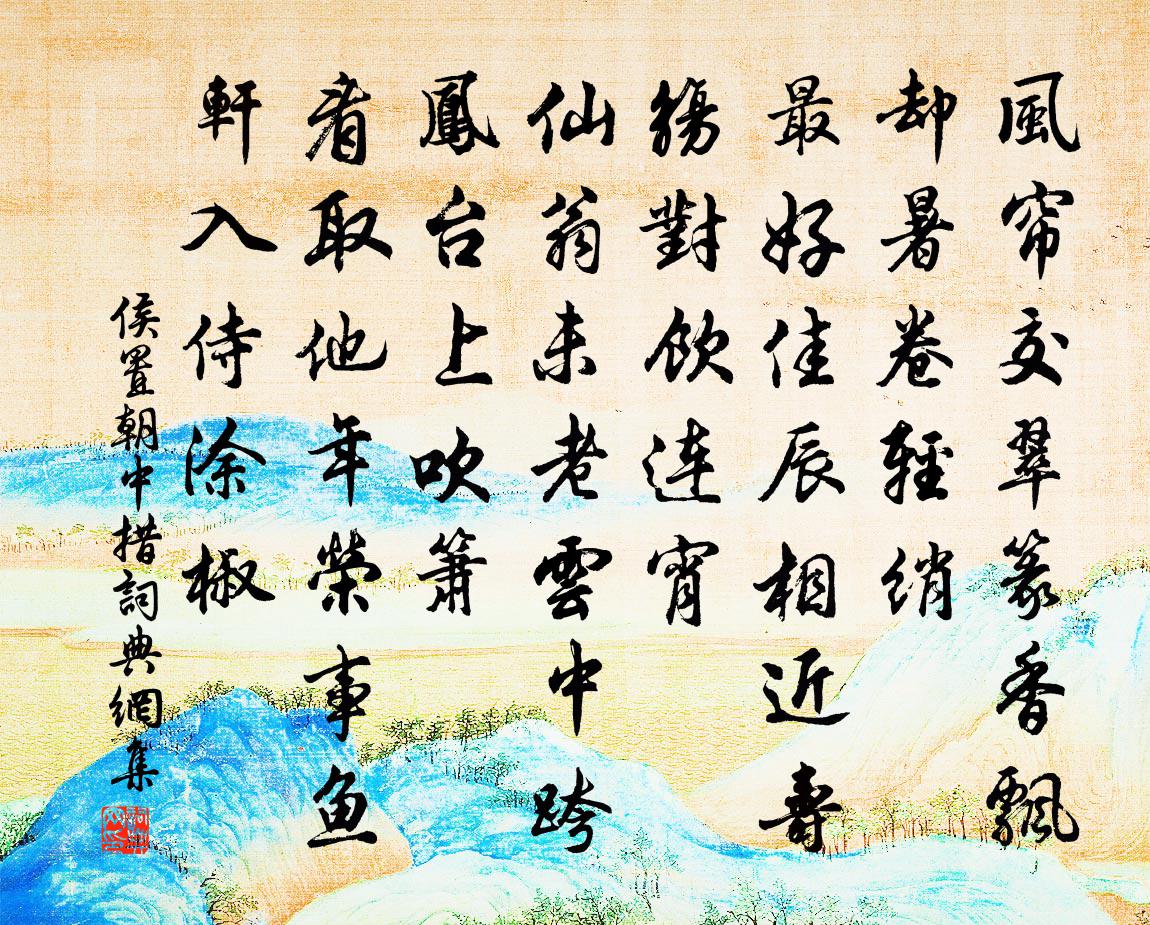 風帘交翠篆香飄
却暑卷輕綃
最好佳辰相近壽
觴對飲連宵
仙翁未老雲中跨
鳳台上吹簫
看取他年榮事魚
軒入侍涂椒
侯置朝中措詞典網集